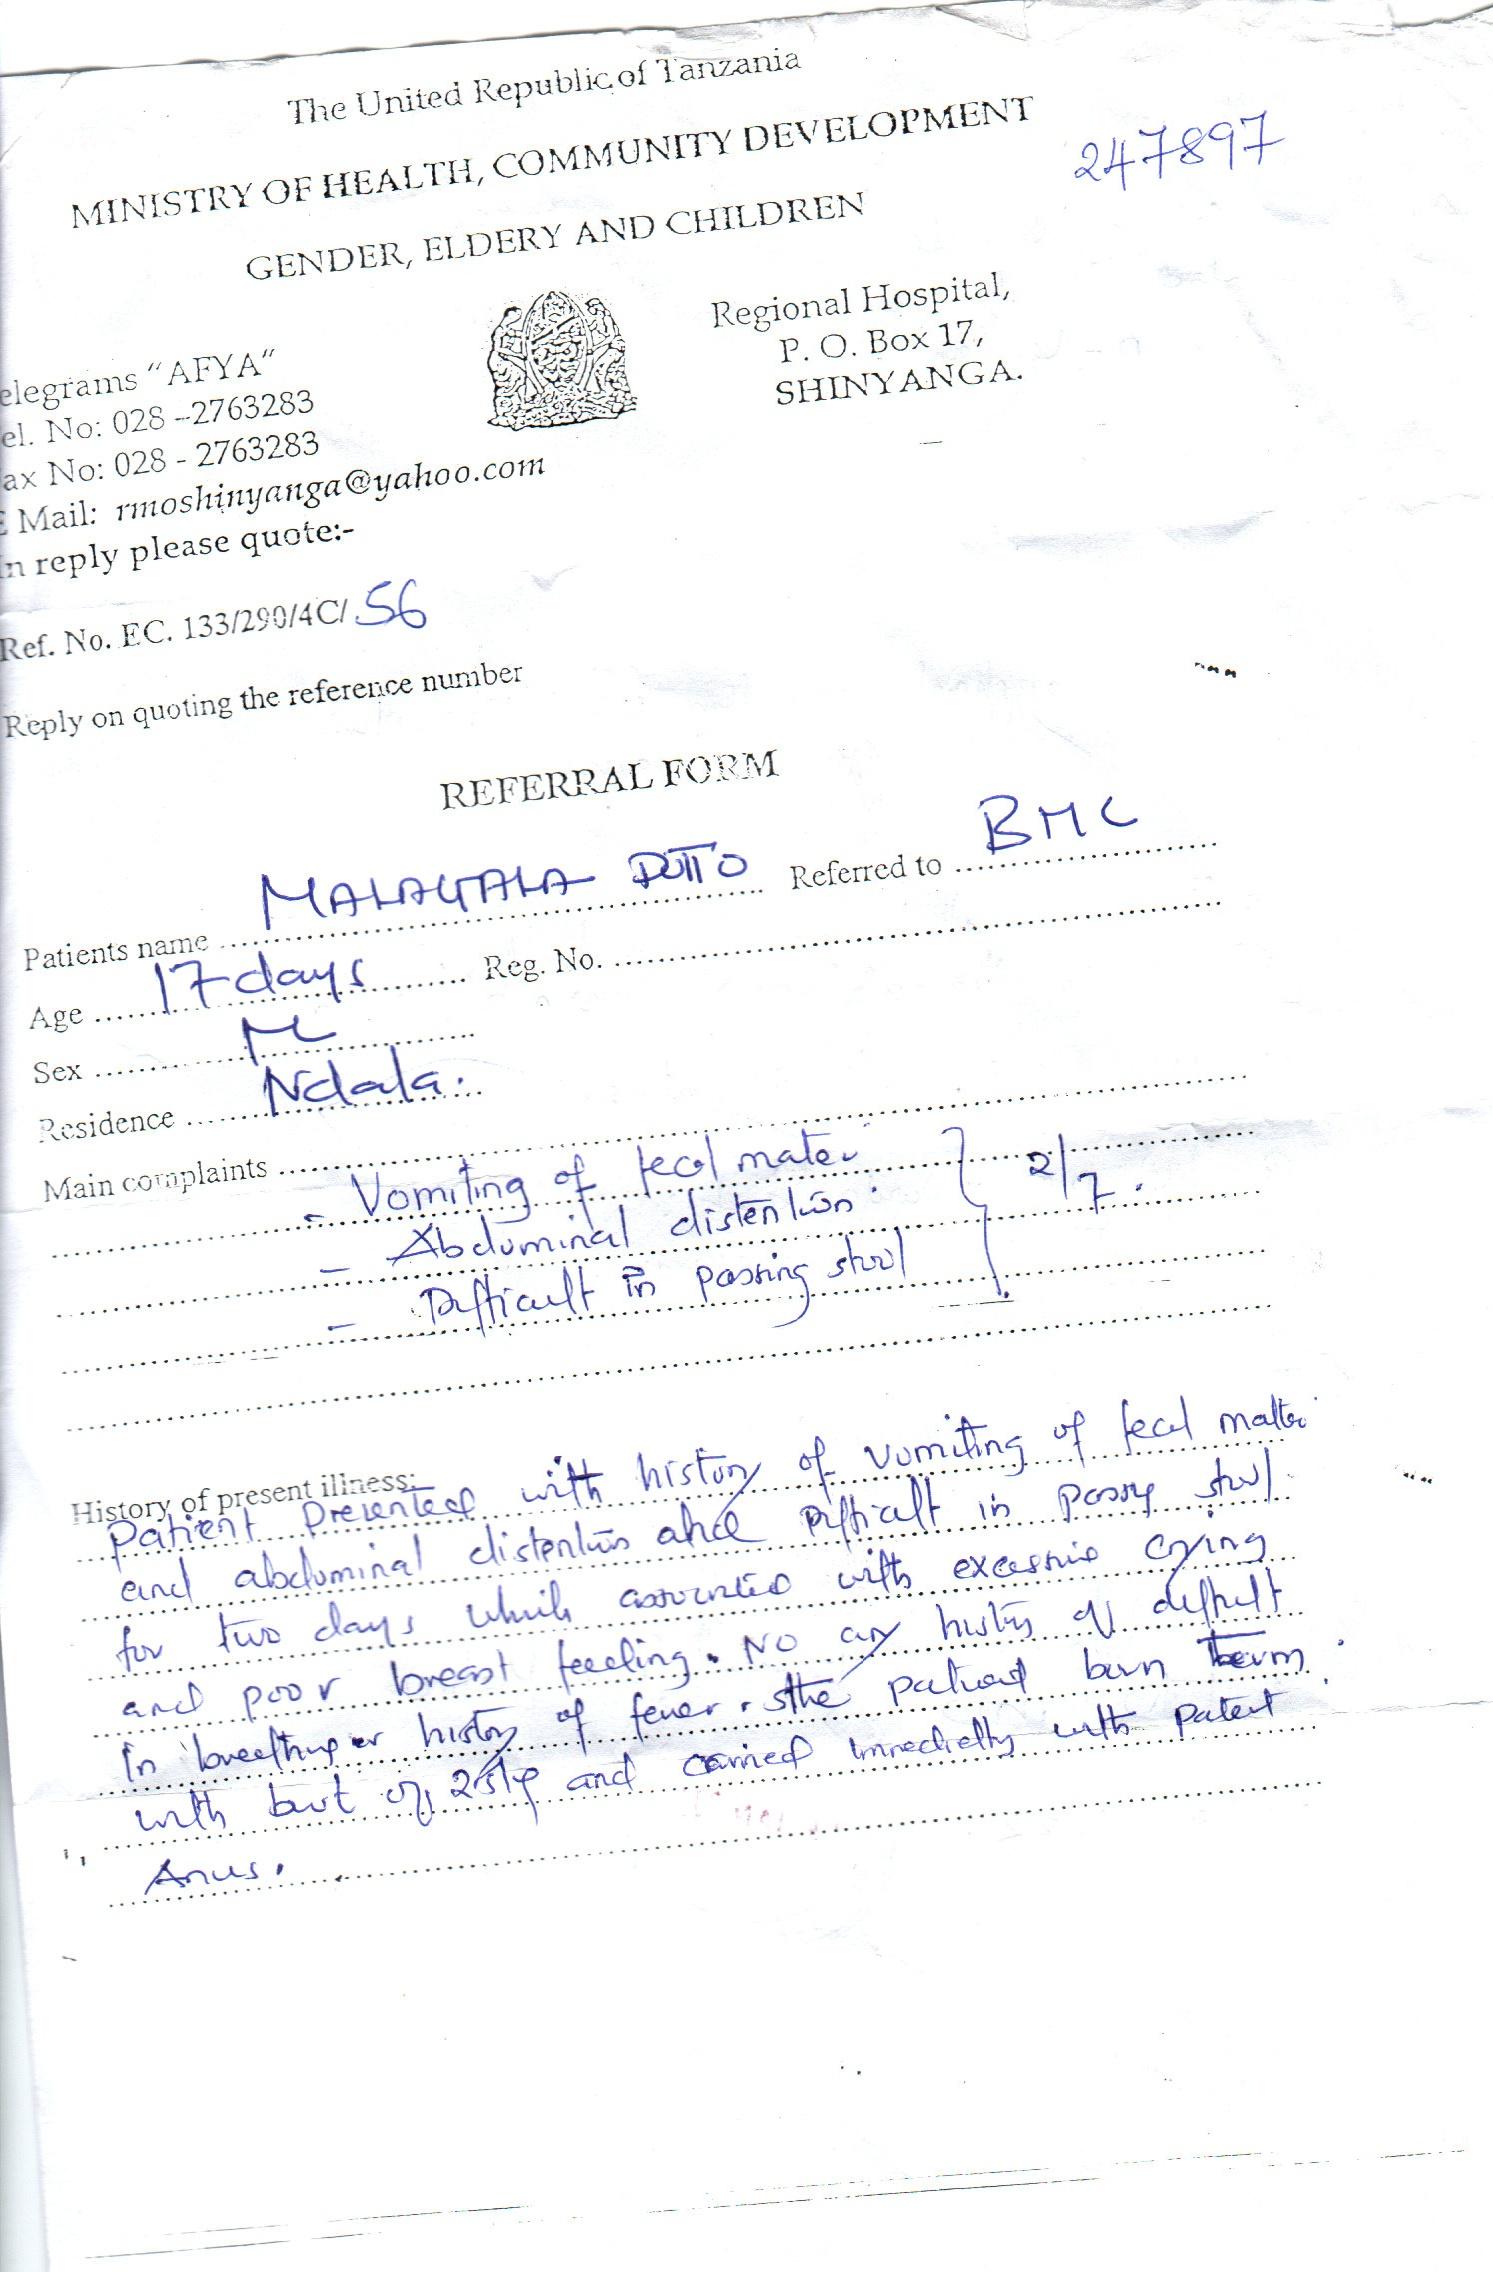 The United Republic of Tanzania
MINISTRY OF HEALTH, COMMUNITY DEVELOPMENT
247897
GENDER, ELDERY AND CHILDREN
Regional Hospital,
P. O. Box 17,
SHINYANGA.
elegrams "AFYA"
el. No: 028 –2763283
ax No: 028 - 2763283
E Mail: rmoshinyanga@yahoo.com
In reply please quote:-
Ref. No. EC. 133/290/4C/ 56
Reply on quoting the reference number
REFERRAL FORM
Patients name DOTTO Referred to BMC
Age 17 days Reg. No.
Sex M
Residence Ndala.
Main complaints
- Vomiting of fecal mater
- Abdominal distention
- Difficult in passing stool } 2/7.
History of present illness:
Patient presented with history of vomiting of fecal matter
and abdominal distention and Difficult in passing stool.
for two days which associated with excessive crying
and poor breast feeding. No any history of
in or history of fever. the patient born Term.
with of and immediately with patent
Anus.